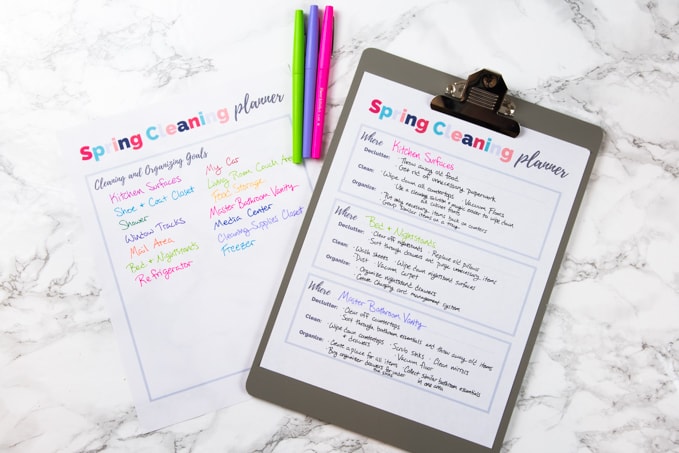 Spring Cleaning planner
Cleaning and Organizing Goals
Kitchen Surfaces
Shoe + Coat Closet
Shower
Window Tracks
Mail Area
Bed + Nightstands
Refrigerator
My Car
Living Room Couch Area
Food Storage
Master Bathroom Vanity
Media Center
Cleaning Supplies Closet
Freezer
Spring Cleaning planner
Where Kitchen Surfaces
Declutter: · Throw away old food
· Get rid of unnecessary paperwork
Clean: · Wipe down all countertops · Vacuum Floors
Organize: · Put only necessary items back on counters
· Group similar items on a tray
Where Bed + Nightstands
Declutter: · Clear off nightstands · Replace old pillows
· Sort through drawers and purge unnecessary items
Clean: · Wash sheets · Wipe down nightstand surfaces
· Dust · Vacuum carpet
Organize: · Organize nightstand drawers
· Create charging cord management system
Where Master Bathroom Vanity
Declutter: · Clear off countertops
· Sort through bathroom essentials and throw away old items
Clean: · Wipe down countertops · Scrub sinks · Clean mirrors
+ drawers · Vacuum floor
Organize: · Create a place for all items · Collect similar bathroom essentials
· Buy organizer drawers for under the sink in one area